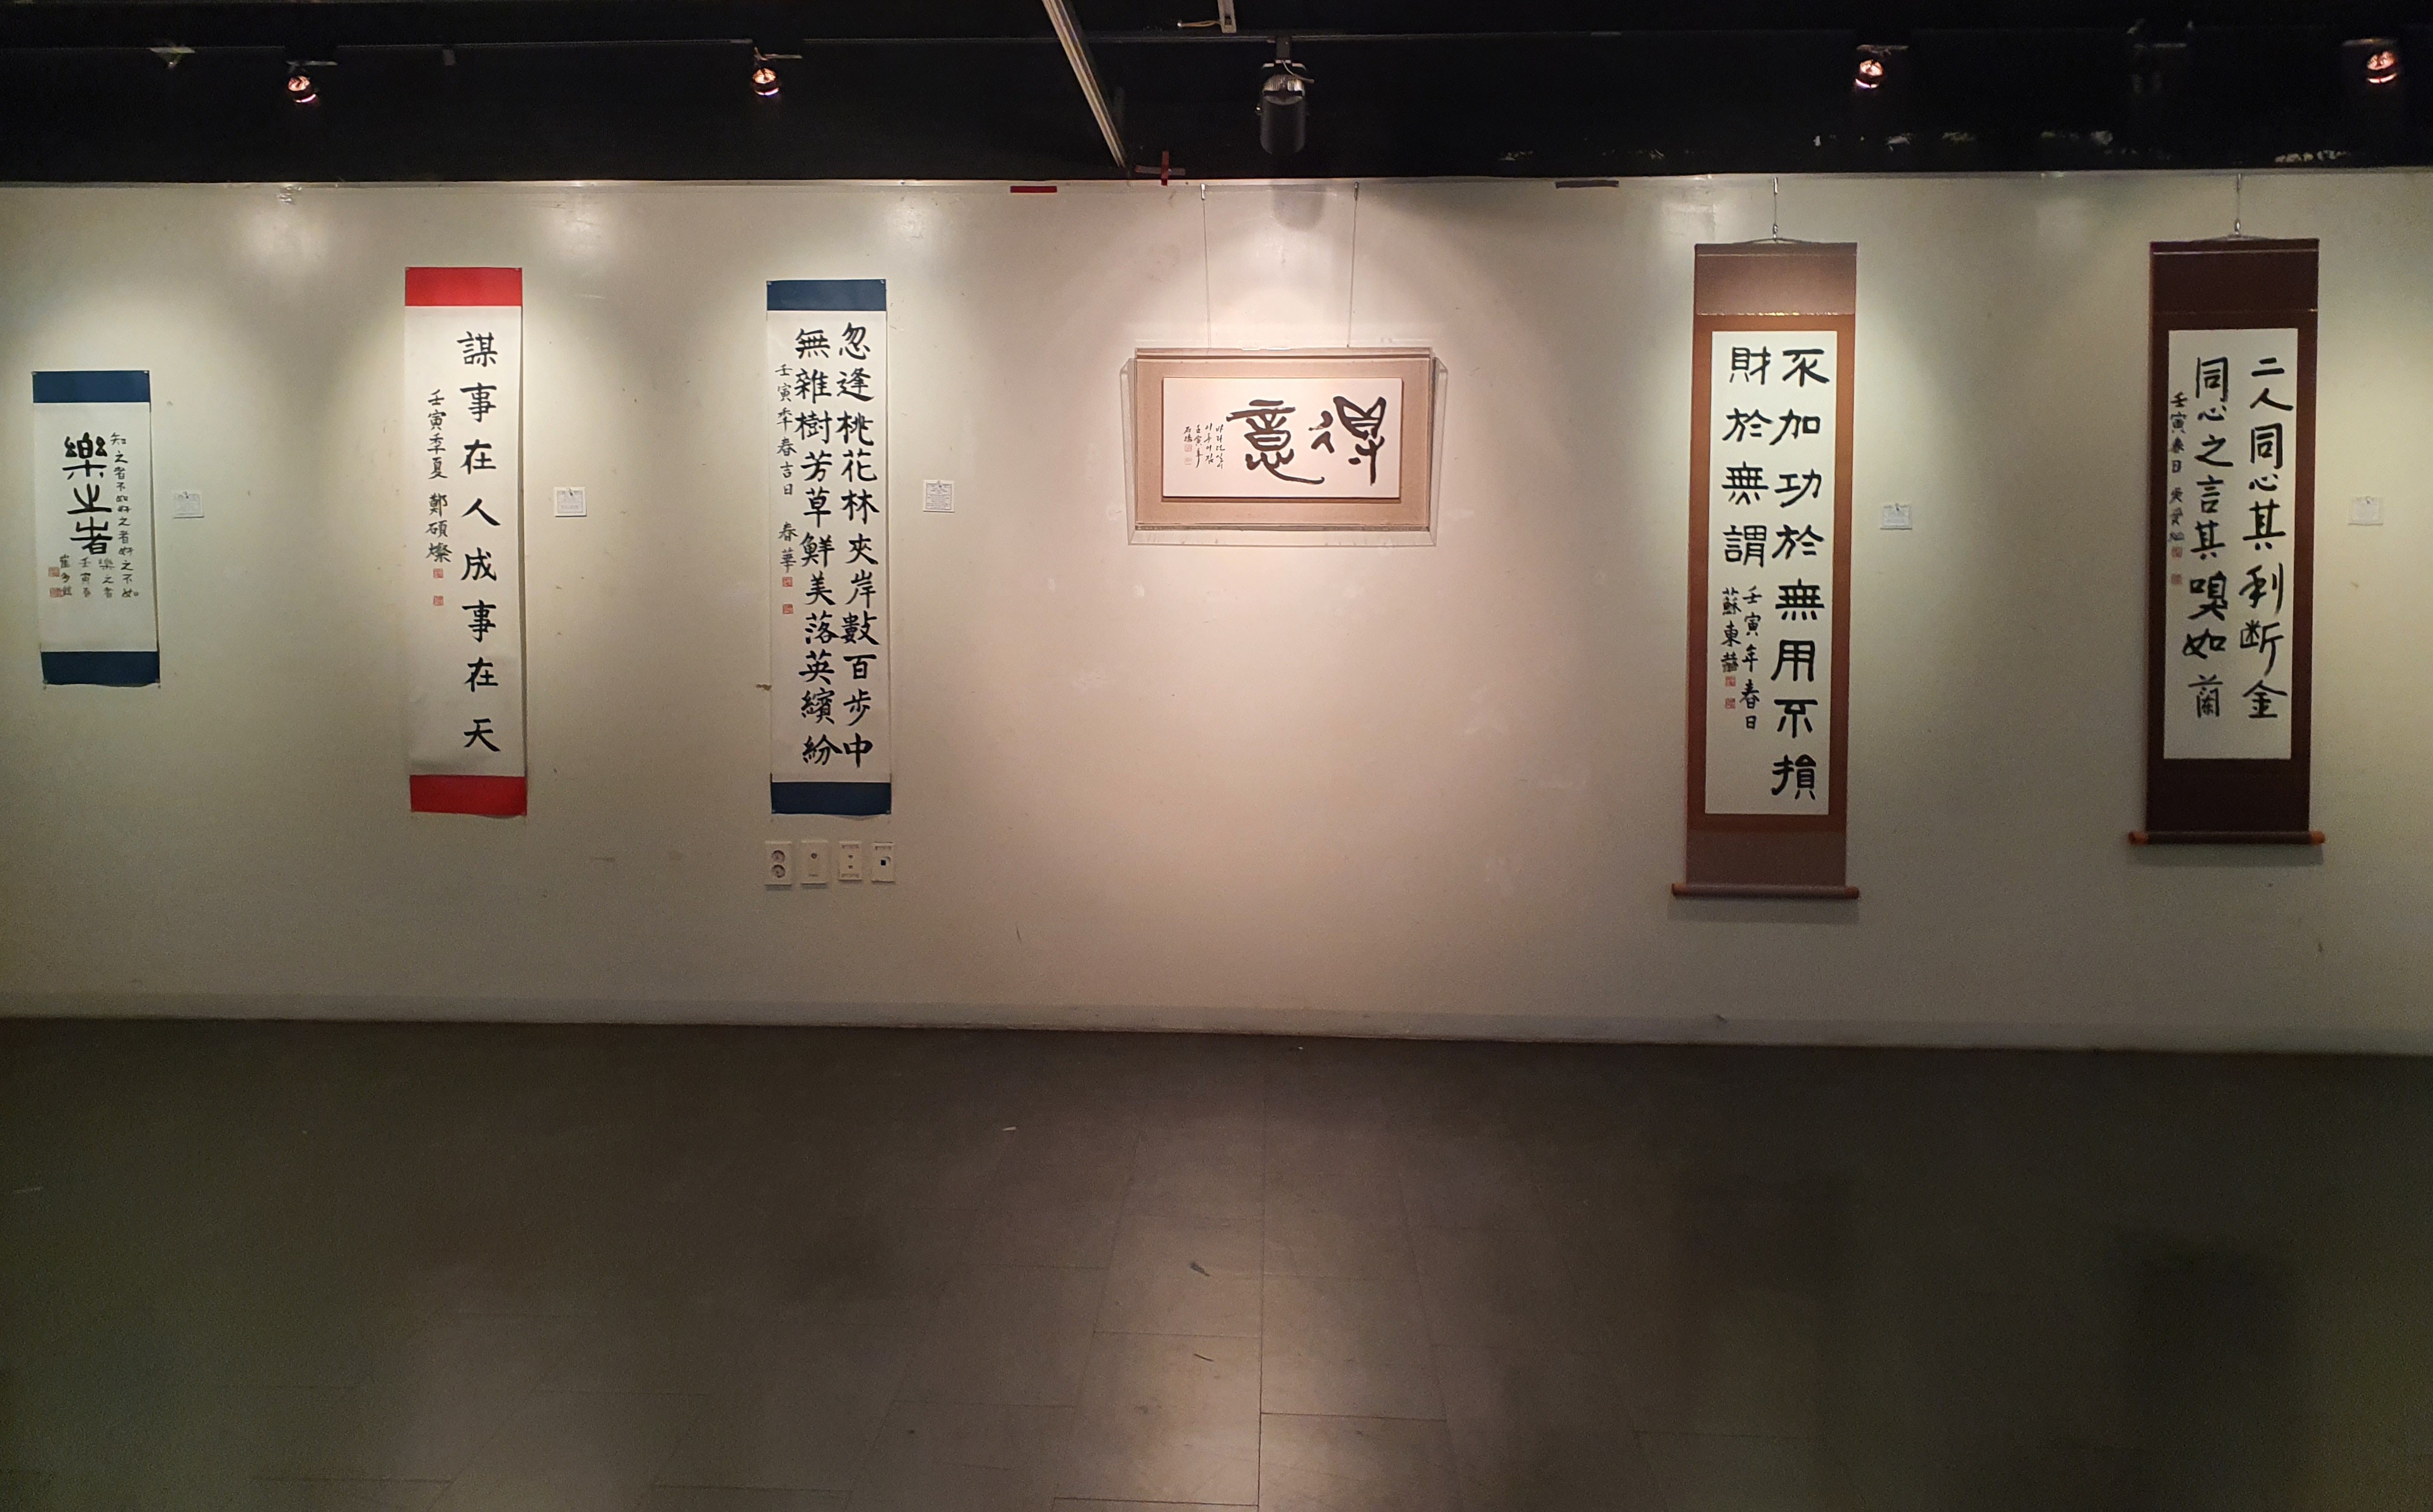 樂之者
知之者不如好之者好之不如
樂之者
壬寅春
謀事在人成事在天
壬寅季夏 鄭碩燦
忽逢桃花林夾岸數百步中
無雜樹芳草鮮美落英繽紛
壬寅季春吉日 春華
得意
壬寅年
不加功於無用不損
財於無謂
壬寅年春日
蘇東
二人同心其利断金
同心之言其嗅如蘭
壬寅春日